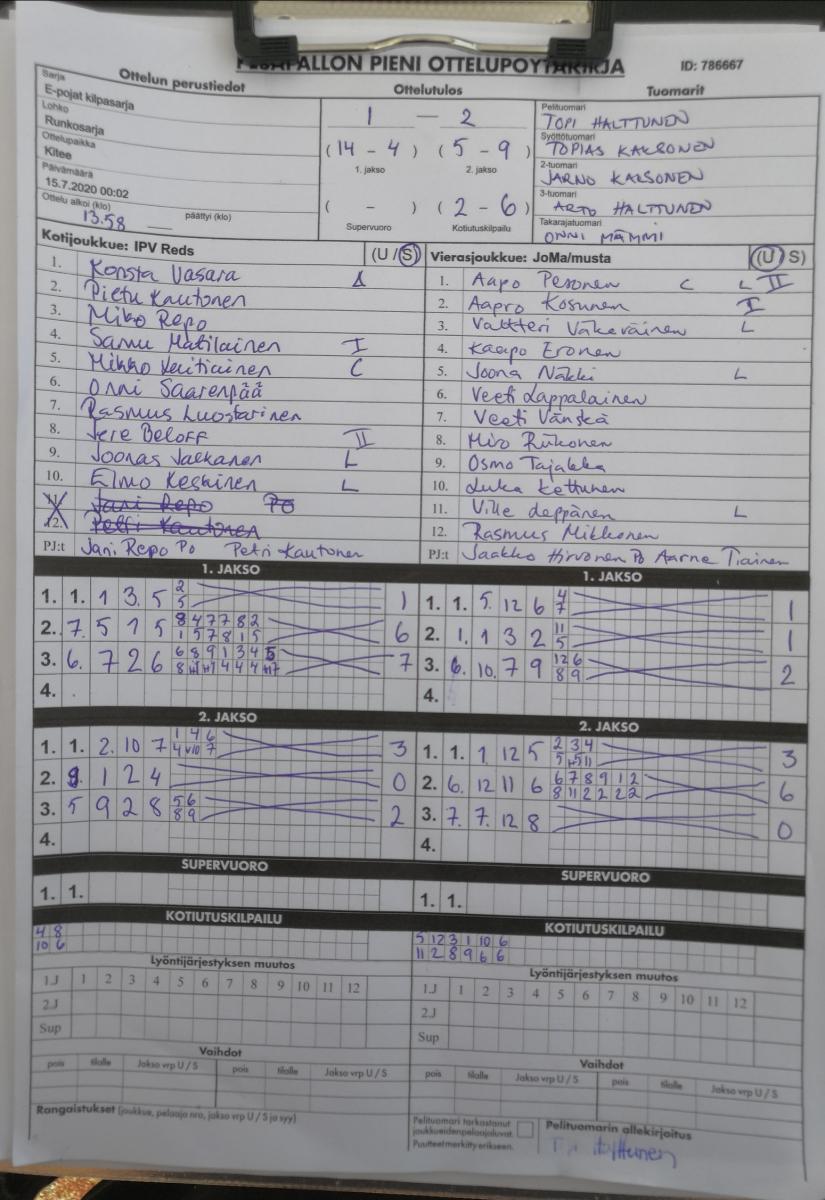 PALLON PIENI OTTELUPÖYTÄKIRJA
ID: 786667
Ottelun perustiedot
Sarja
E-pojat kilpasarja
Lohko
Runkosarja
Ottelupaikka
Kitee
Päivämäärä
15.7.2020 00:02
Ottelu alkoi (klo) päättyi (klo)
13.58
Ottelutulos
1 — 2
(14 - 4) (5 - 9)
1. jakso 2. jakso
( - ) (2 - 6)
Supervuoro Kotiutuskilpailu
Tuomarit
Pelituomari
TOPI HALTTUNEN
Syöttötuomari
TOPIAS KAKSONEN
2-tuomari
JARNO KAKSONEN
3-tuomari
ARTO HALTTUNEN
Takarajatuomari
ONNI MÄMMI
Kotijoukkue: IPV Reds (U / S)
1. Konsta Vasara
2. Pietu Kautonen
3. Miko Repo
4. Samu Matilainen I
5. Mikko C
6. Onni Saarenpää
7. Rasmus Luostarinen
8. Jere Beloff II
9. Joonas Jalkanen L
10. Elmo Keskinen L
11. Jani Repo PO
12. Petri Kautonen
PJ:t Jani Repo Po Petri Kautonen
Vierasjoukkue: JoMa/musta (U / S)
1. Aapo Pesonen C L II
2. Aapro Kosunen I
3. Valtteri Väkeväinen L
4. Kaapo Eronen
5. Joona Näkki L
6. Veeti Lappalainen
7. Veeti Vänskä
8. Miro Riikonen
9. Osmo Tajakka
10. Luka Kettunen
11. Ville Leppänen L
12. Rasmus Mikkonen
PJ:t Jaakko Hirvonen Po Aarne Tiainen
1. JAKSO
1. 1. 1 3. 5 2 1
5
2. 7. 5 1 5 8 4 7 7 8 2 6
1 5 7 8 1 5
3. 6. 7 2 6 6 8 9 1 3 4 5 7
4.
1. JAKSO
1. 1. 5. 12 6 4 1
7
2. 1. 1 3 2 11 1
5
3. 6. 10. 7 9 12 6 2
8 9
4.
2. JAKSO
1. 1. 2. 10 7 1 4 6 3
2. 9. 1 2 4 0
3. 5 9 2 8 5 6 2
8 9
4.
2. JAKSO
1. 1. 1 12 5 2 3 4 3
2. 6. 12 11 6 6 7 8 9 1 2 6
8 11 2 2 2 2
3. 7. 7. 12 8 0
4.
SUPERVUORO
1. 1.
SUPERVUORO
1. 1.
KOTIUTUSKILPAILU
4 8
10 6
KOTIUTUSKILPAILU
5 12 3 1 10 6
11 2 8 9 6 6
Lyöntijärjestyksen muutos
1.J 1 2 3 4 5 6 7 8 9 10 11 12
2.J
Sup
Lyöntijärjestyksen muutos
1.J 1 2 3 4 5 6 7 8 9 10 11 12
2.J
Sup
Vaihdot
pois tilalle Jakso vrp U / S pois tilalle Jakso vrp U / S
Vaihdot
pois tilalle Jakso vrp U / S pois tilalle Jakso vrp U / S
Rangaistukset (joukkue, pelaaja nro, jakso vrp U / S ja syy)
Pelituomari tarkastanut
joukkueidenpelaajaluvat.
Puutteet merkitty erikseen.
Pelituomarin allekirjoitus